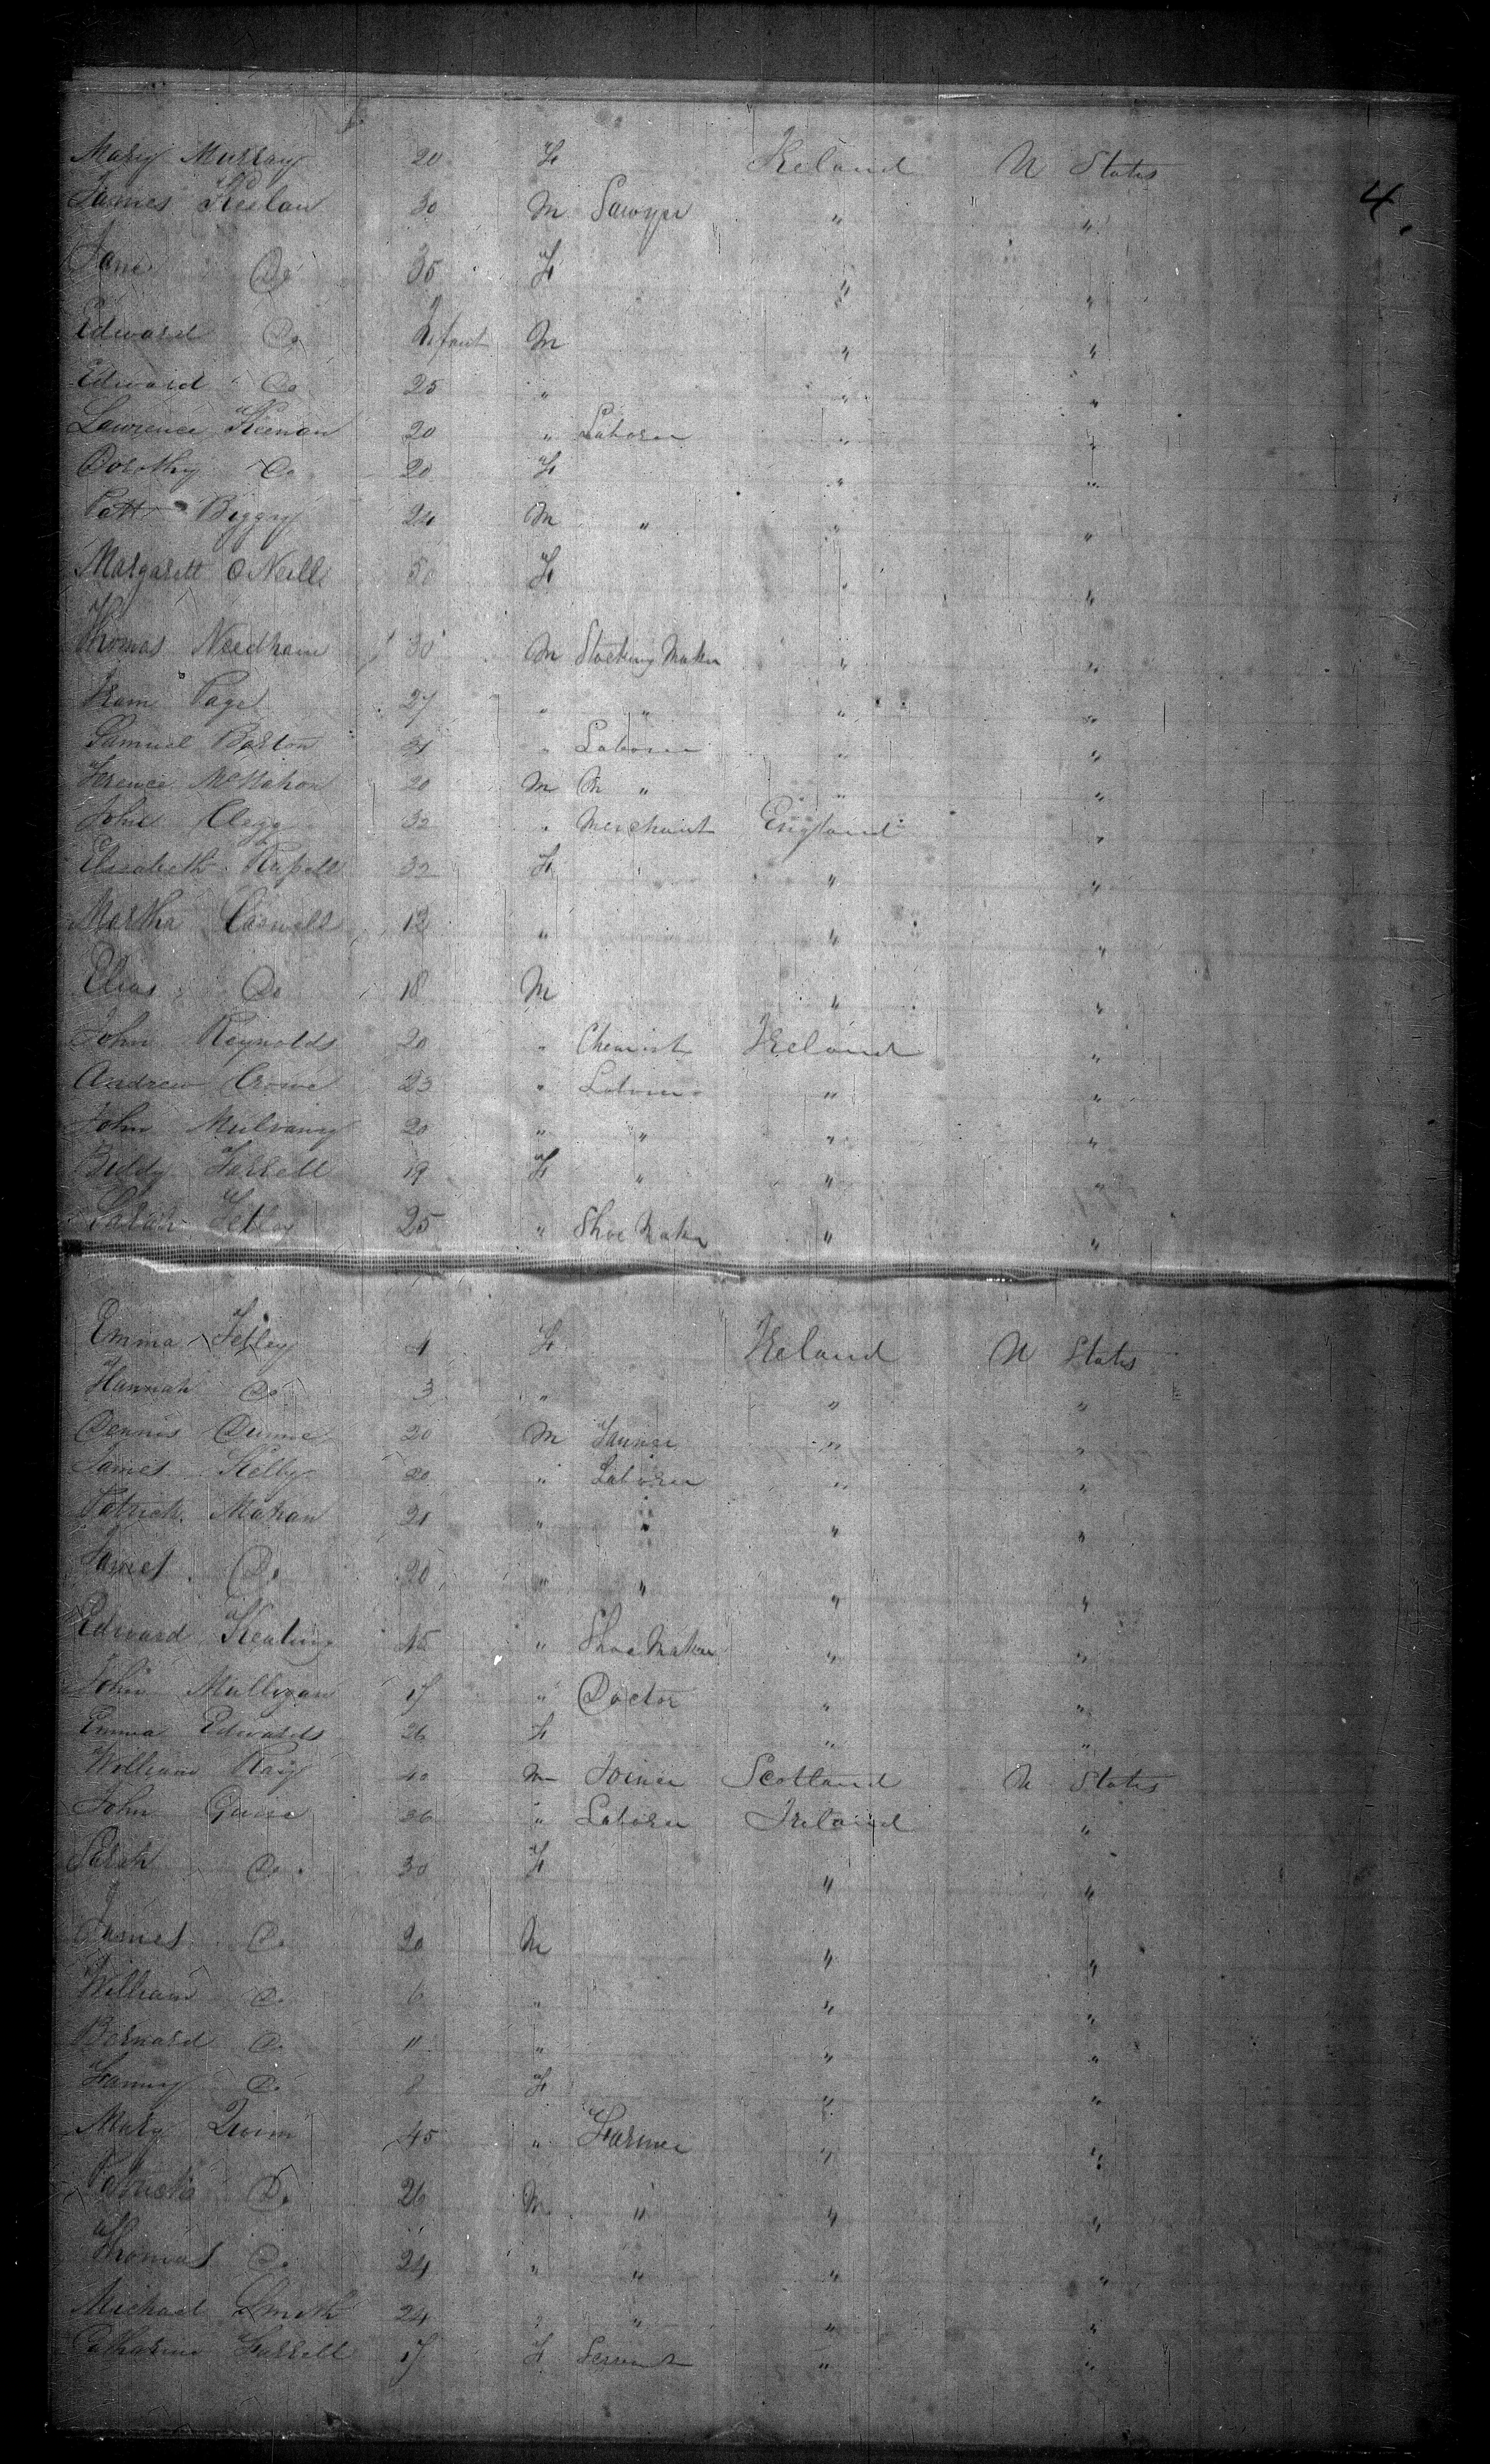 4.
Mary Murray 20 F Ireland U States
James Keelan 30 M Sawyer " "
Jane Do 35 F " "
Edward Do Infant M " "
Edward Do 25 " " "
Lawrence Keenan 20 " Laborer " "
Dorothy Do 20 F " "
Patt Biggy 24 M " " "
Margarett O Neill 50 F " "
Thomas Needham 30 M Stocking Maker " "
Page 27 " " " "
Samuel Barton " Laborer " "
Terence McMahon 20 M " " "
John Clegg 32 " Merchant England "
Elizabeth 32 F " "
Martha Caswell 12 " " "
Elias Do 18 M " "
John Reynolds 20 " Chemist Ireland "
Andrew Crowe 23 " Laborer " "
John Mulvany 20 " " " "
Biddy Farrell 19 F " " "
Sarah 25 " Shoe Maker " "
Emma 4 F Ireland U States
Hannah Do 3 " " "
Dennis Dunne 20 M " "
James Kelly 20 " Laborer " "
Patrick Mahan 21 " " " "
James Do 20 " " " "
Edward Keating 45 " Shoe Maker " "
John Mulligan 17 " Doctor " "
Emma Edwards 26 F " "
William Ray 40 M Joiner Scotland U States
John 36 " Laborer Ireland "
Sarah Do 30 F " "
James Do 20 M " "
William Do 6 " " "
Bernard Do 11 " " "
Fanny Do 8 F " "
Mary Quinn 45 " Farmer " "
Patrick Do 26 M " " "
Thomas Do 24 " " " "
Michael Smith 24 " " " "
Catharine Farrell 17 F Servant " "